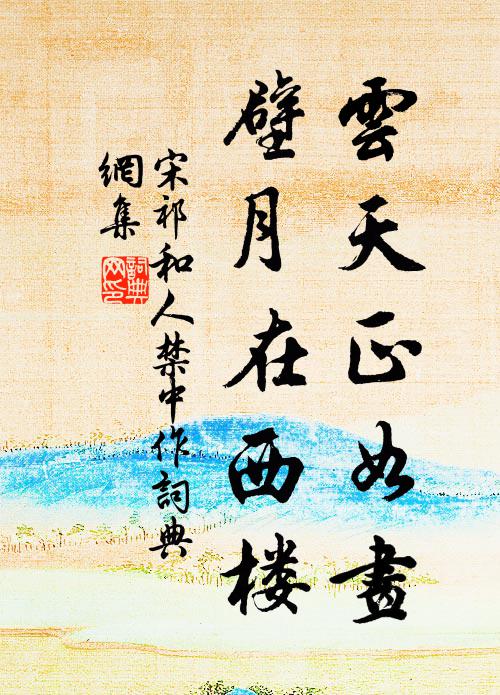 雲天正如畫
璧月在西楼
宋祁和人禁中作詞典
網集
詞典
网印